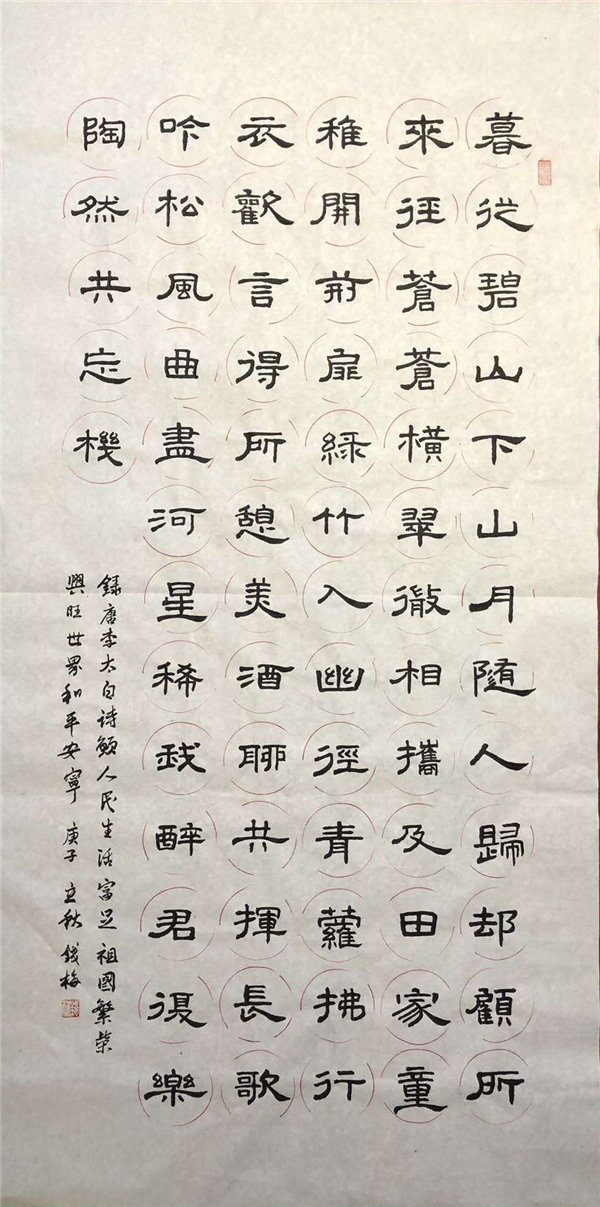 暮從碧山下山月隨人歸却顧所
來徑蒼蒼橫翠微相攜及田家童
稚開荊扉綠竹入幽徑青蘿拂行
衣歡言得所憩美酒聊共揮長歌
吟松風曲盡河星稀我醉君復樂
陶然共忘機
録唐李太白诗願人民生活富足祖國繁榮
興旺世界和平安寧 庚子 立秋 錢梅